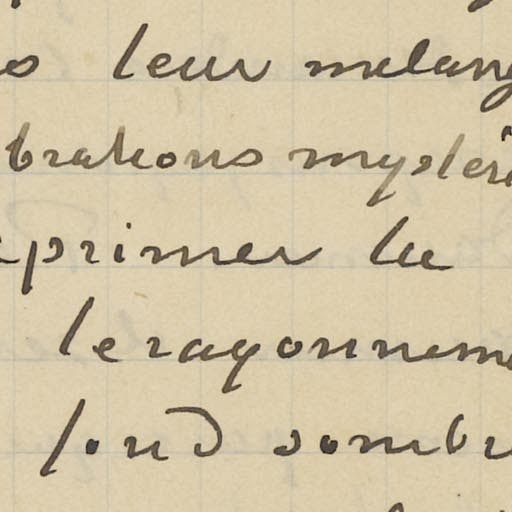 leur melang
brations mystéri
primer la
le rayonneme
fond sombr